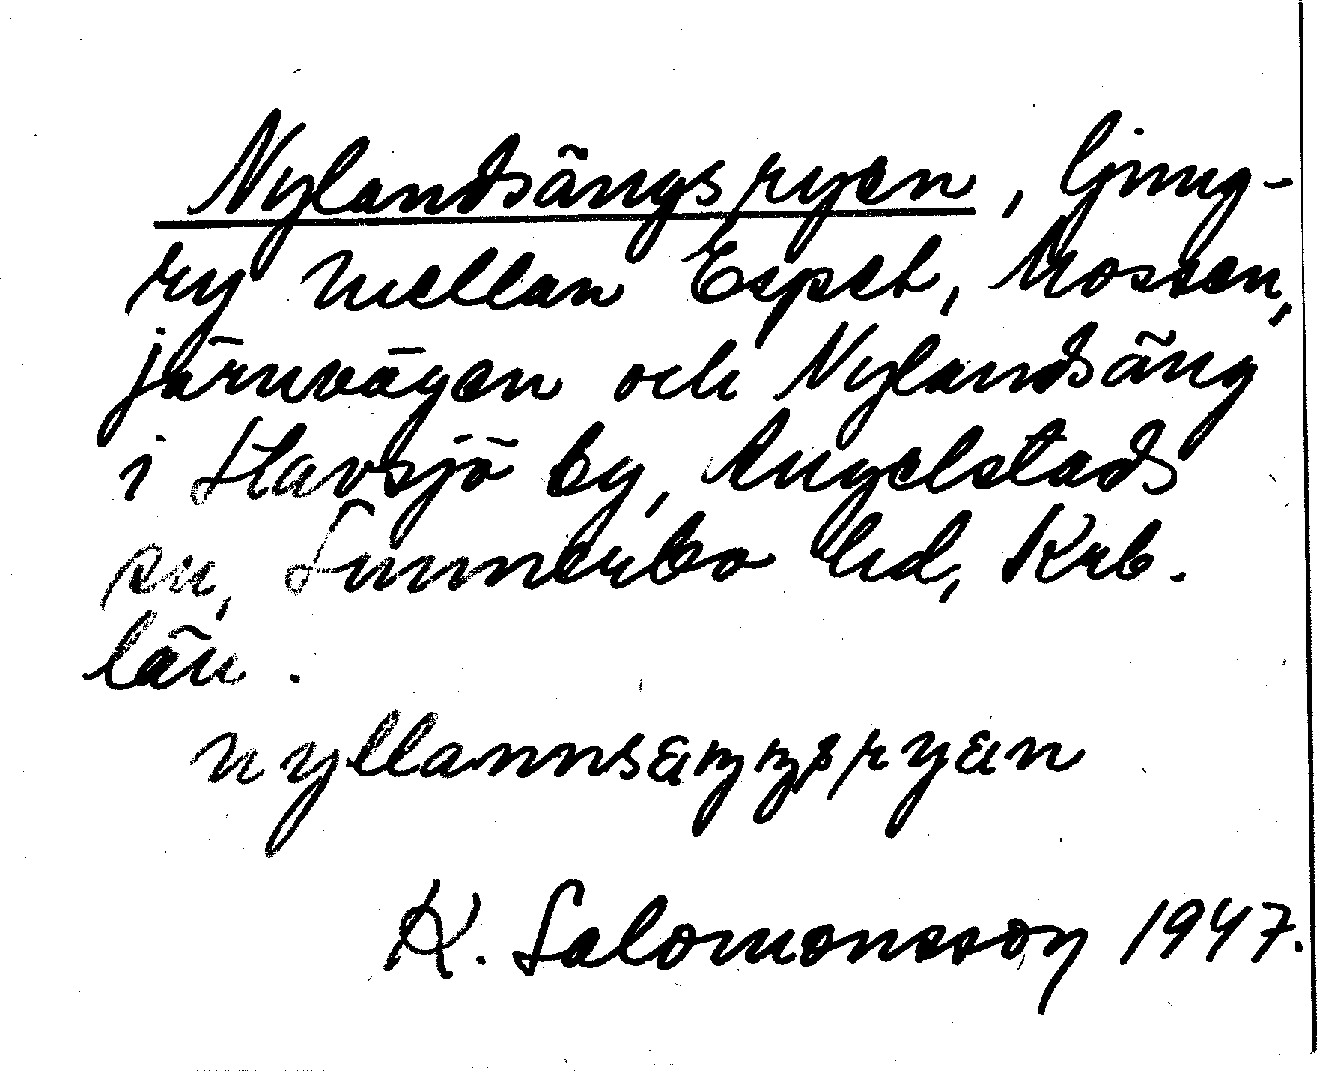 Nylandsängsryen, ljung-
ry mellan Espet, Mossen,
järnvägen och Nylandsäng
i Havsjö by, Angelstads
sn, Sunnerbo hd, Krb.
län.
nyllannsæŋŋsryæn
K. Salomonsson 1947.